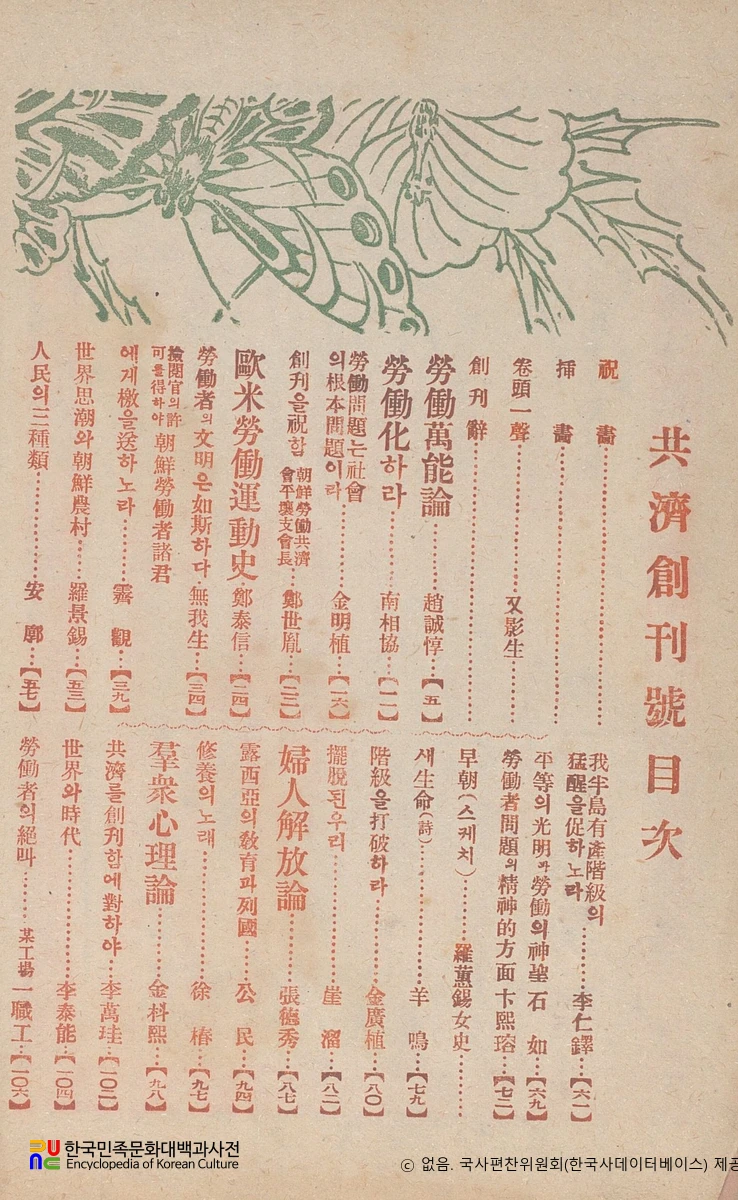 共濟創刊號目次
祝畵
挿畵
卷頭一聲 又影生
創刊辭
勞働萬能論 趙誠惇 【五】
勞働化하라 南相協 【一一】
勞働問題는社會의根本問題이라 金明植 【一六】
創刊을祝함 朝鮮勞働共濟會平壤支會長 鄭世胤 【二二】
歐米勞働運動史 鄭泰信 【二四】
勞働者의文明은如斯하다 無我生 【三四】
檢閱官의許可를得하야 朝鮮勞働者諸君
에게檄을送하노라 霽觀 【三九】
世界思潮와朝鮮農村 羅景錫 【五三】
人民의三種類 安廓 【五七】
我半島有產階級의猛醒을促하노라 李仁鐸 【六一】
平等의光明과勞働의神聖 石如 【六九】
勞働者問題의精神的方面 卞熙瑢 【七二】
早朝(스케치) 羅蕙錫女史
새生命(詩) 羊鳴 【七九】
階級을打破하라 金廣植 【八〇】
擺脫된우리 崖溜 【八二】
婦人解放論 張德秀 【八七】
露西亞의敎育과列國 公民 【九四】
修養의노래 徐椿 【九七】
羣衆心理論 金枓熙 【九八】
共濟를創刊함에對하야 李萬珪 【一〇二】
世界와時代 李泰能 【一〇四】
勞働者의絕叫 某工場一職工 【一〇六】
한국민족문화대백과사전
Encyclopedia of Korean Culture
ⓒ 없음. 국사편찬위원회(한국사데이터베이스) 제공